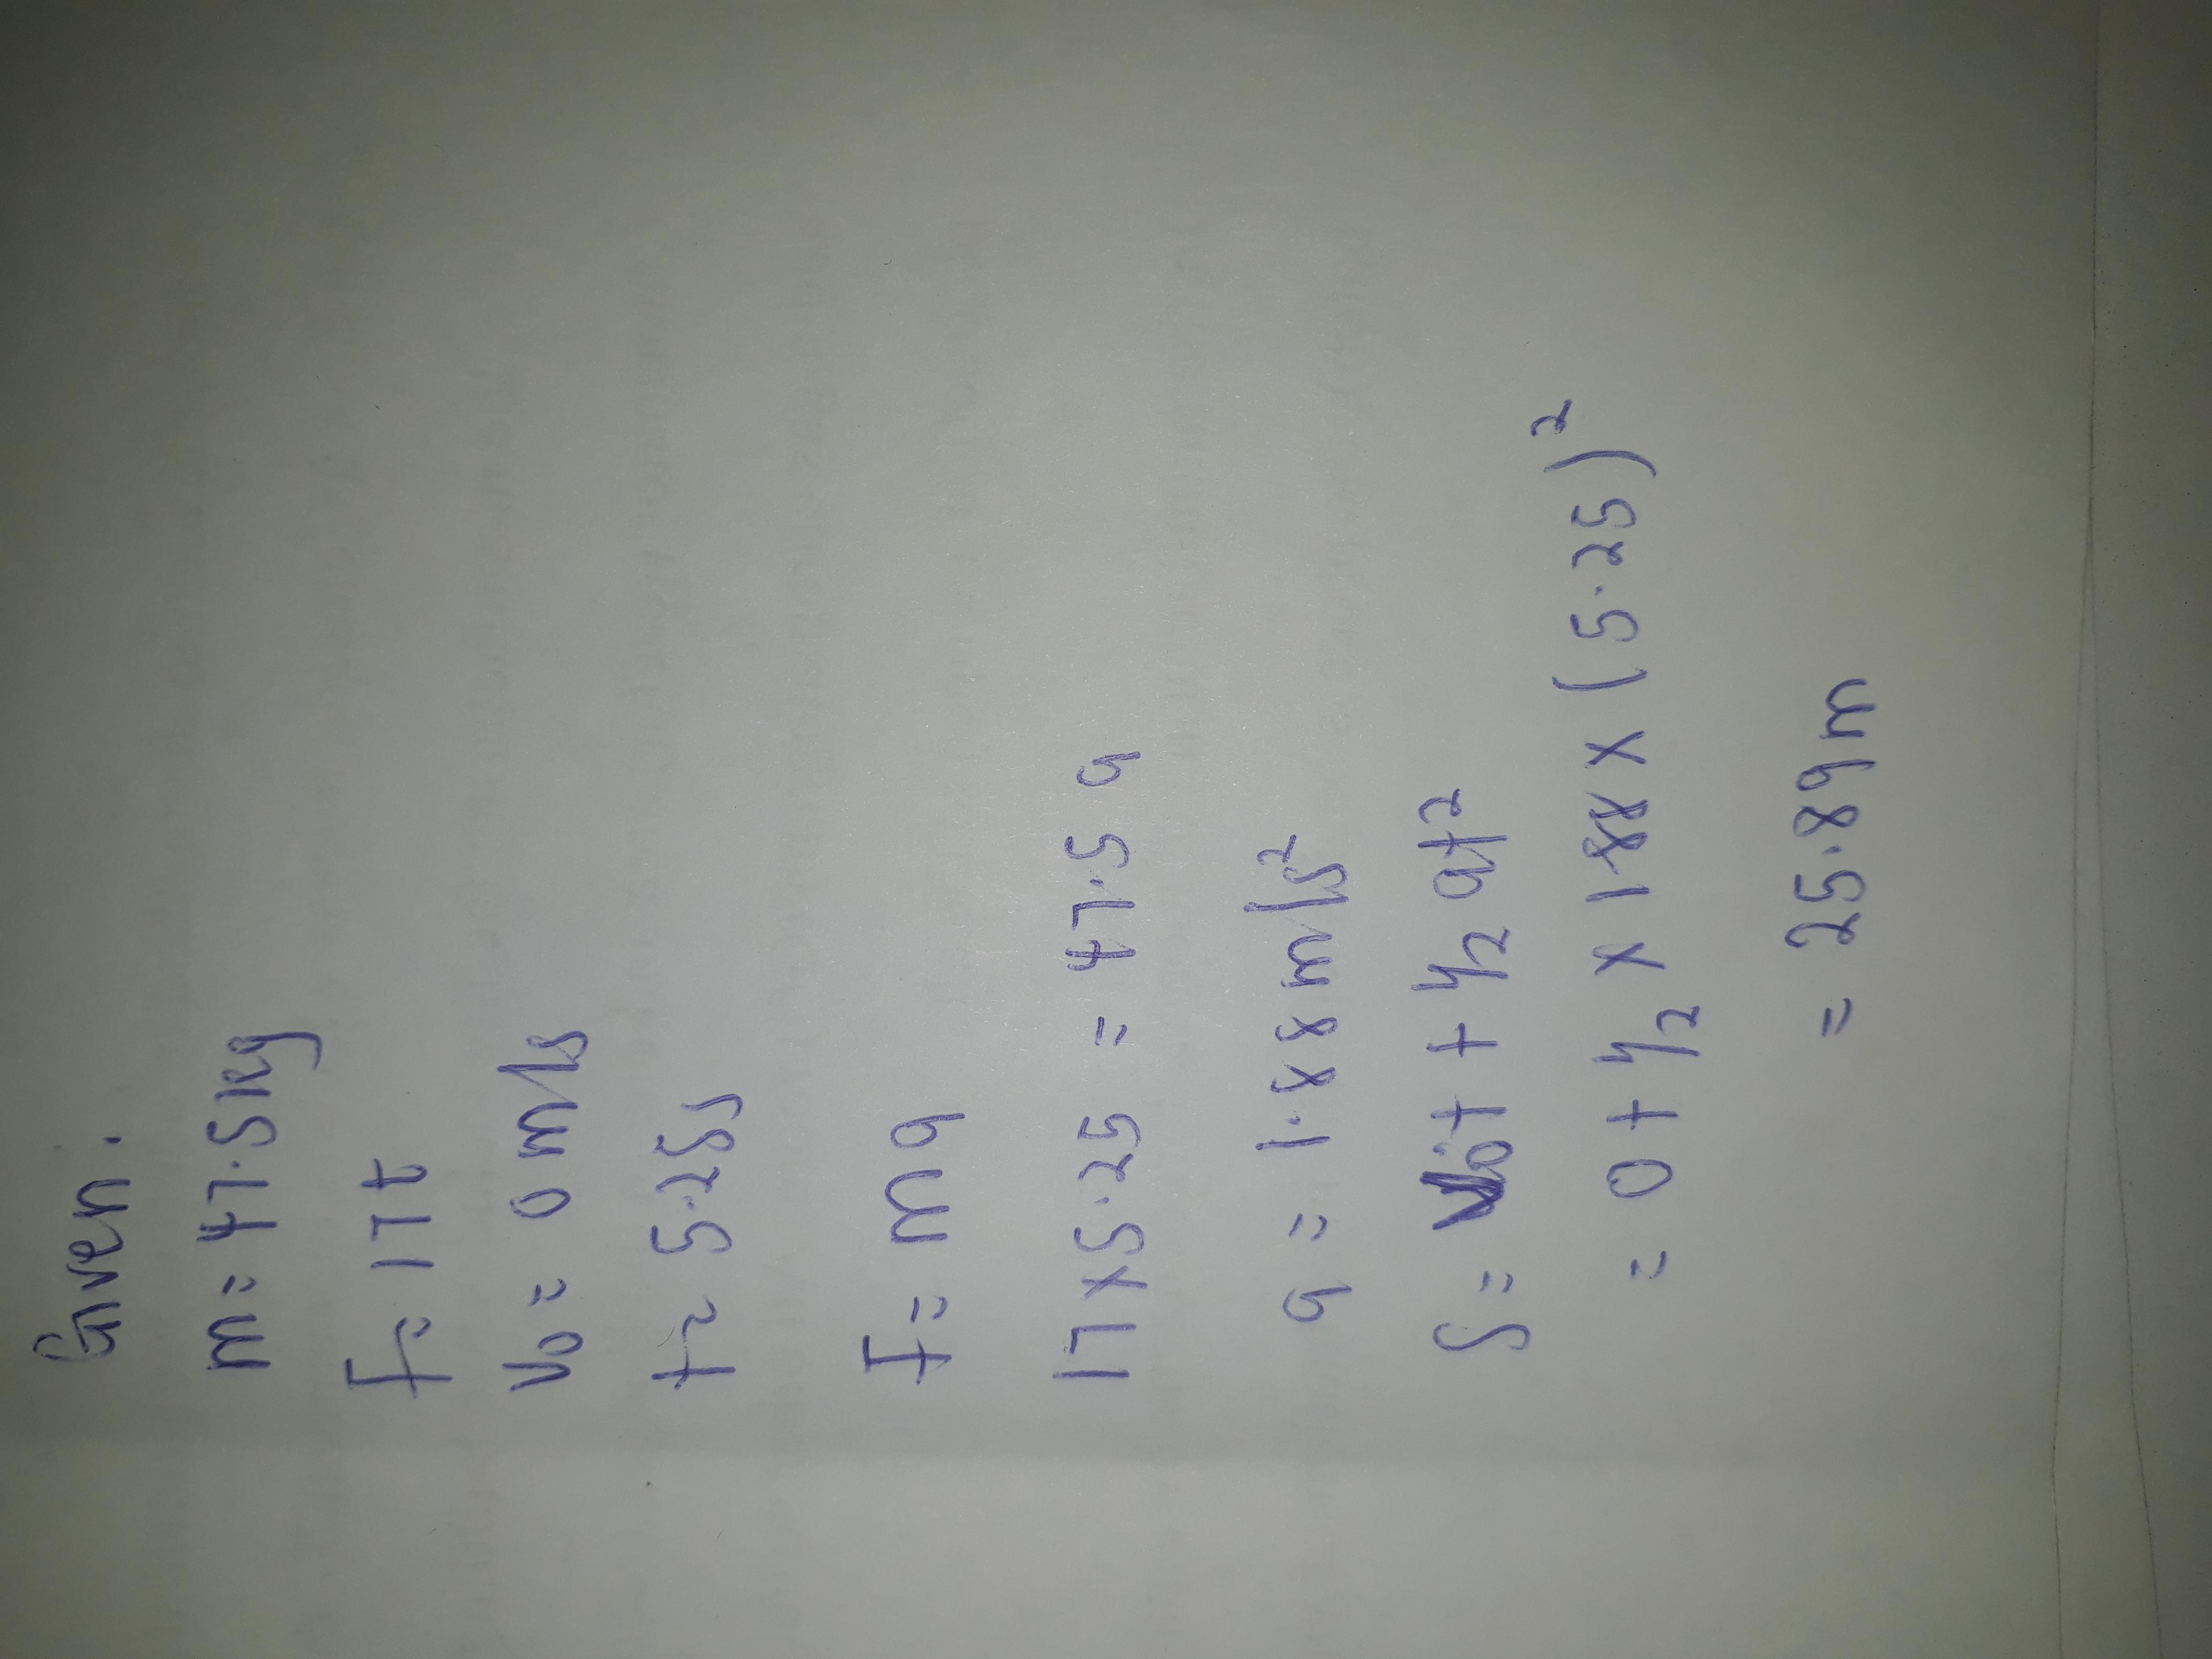 Given:
m = 47.5 kg
F = 17 t
V₀ = 0 m/s
t = 5.25s
F = m a
17 x 5.25 = 47.5 a
a = 1.88 m/s²
S = V₀t + 1/2 at²
= 0 + 1/2 x 1.88 x (5.25)²
= 25.89 m